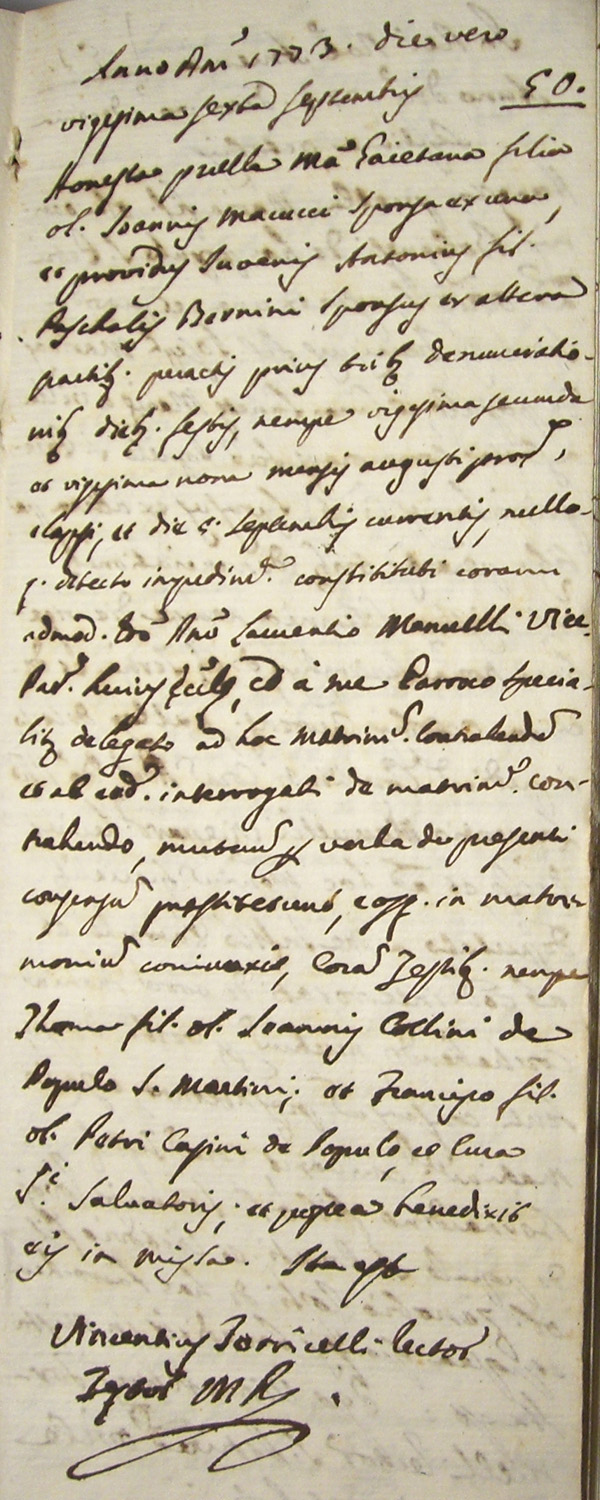 Anno Dni 1773. die vero
vigesima sexta Septembris 50.
Honesta puella Ma Gaietana filia
ol. Joannis Macucci Sponsa ex una,
et providus Juvenis Antonius fil.
Paschalis Bernini Sponsus ex altera
partib. peractis prius trib. denunciatio-
nib. dieb. festis, nempe vigesima secunda
et vigesima nona mensis augusti prox,
elapsi, et die 5. septembris currentis, nullo-
q. detecto impedim. constituti coram
admod. Rdo Dno Laurentio Manuelli Vice-
Par. huius Eccl, et à me Paroco specia-
lit delegato ad hoc Matrim. Contrahend
et ab eod. interrogati de matrim. con-
trahendo, mutuu p verba de presenti
consensu prestiterunt, eosq. in matri-
moniu coniunxit, Cora Testib. nempe
Thoma fil. ol. Joannis Collini de
Populo S. Martini; et Francisco fil.
ol. Petri Casini de Populo, et Cura
Sti. Salvatoris; et postea benedixit
eis in missa. Ita est
Vincentius Torricelli Rector